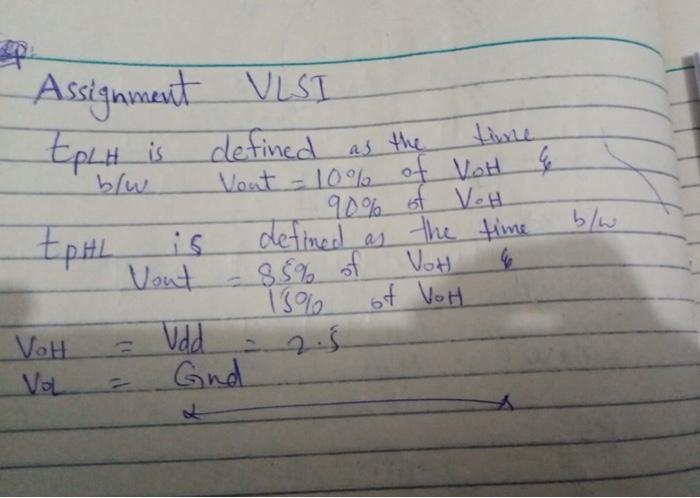 Assignment VLSI
tPLH is defined as the time
b/w Vout = 10% of VOH &
90% of VOH
tPHL is defined as the time b/w
Vout = 85% of VOH &
15% of VOH
VOH = Vdd = 2.5
VOL = Gnd